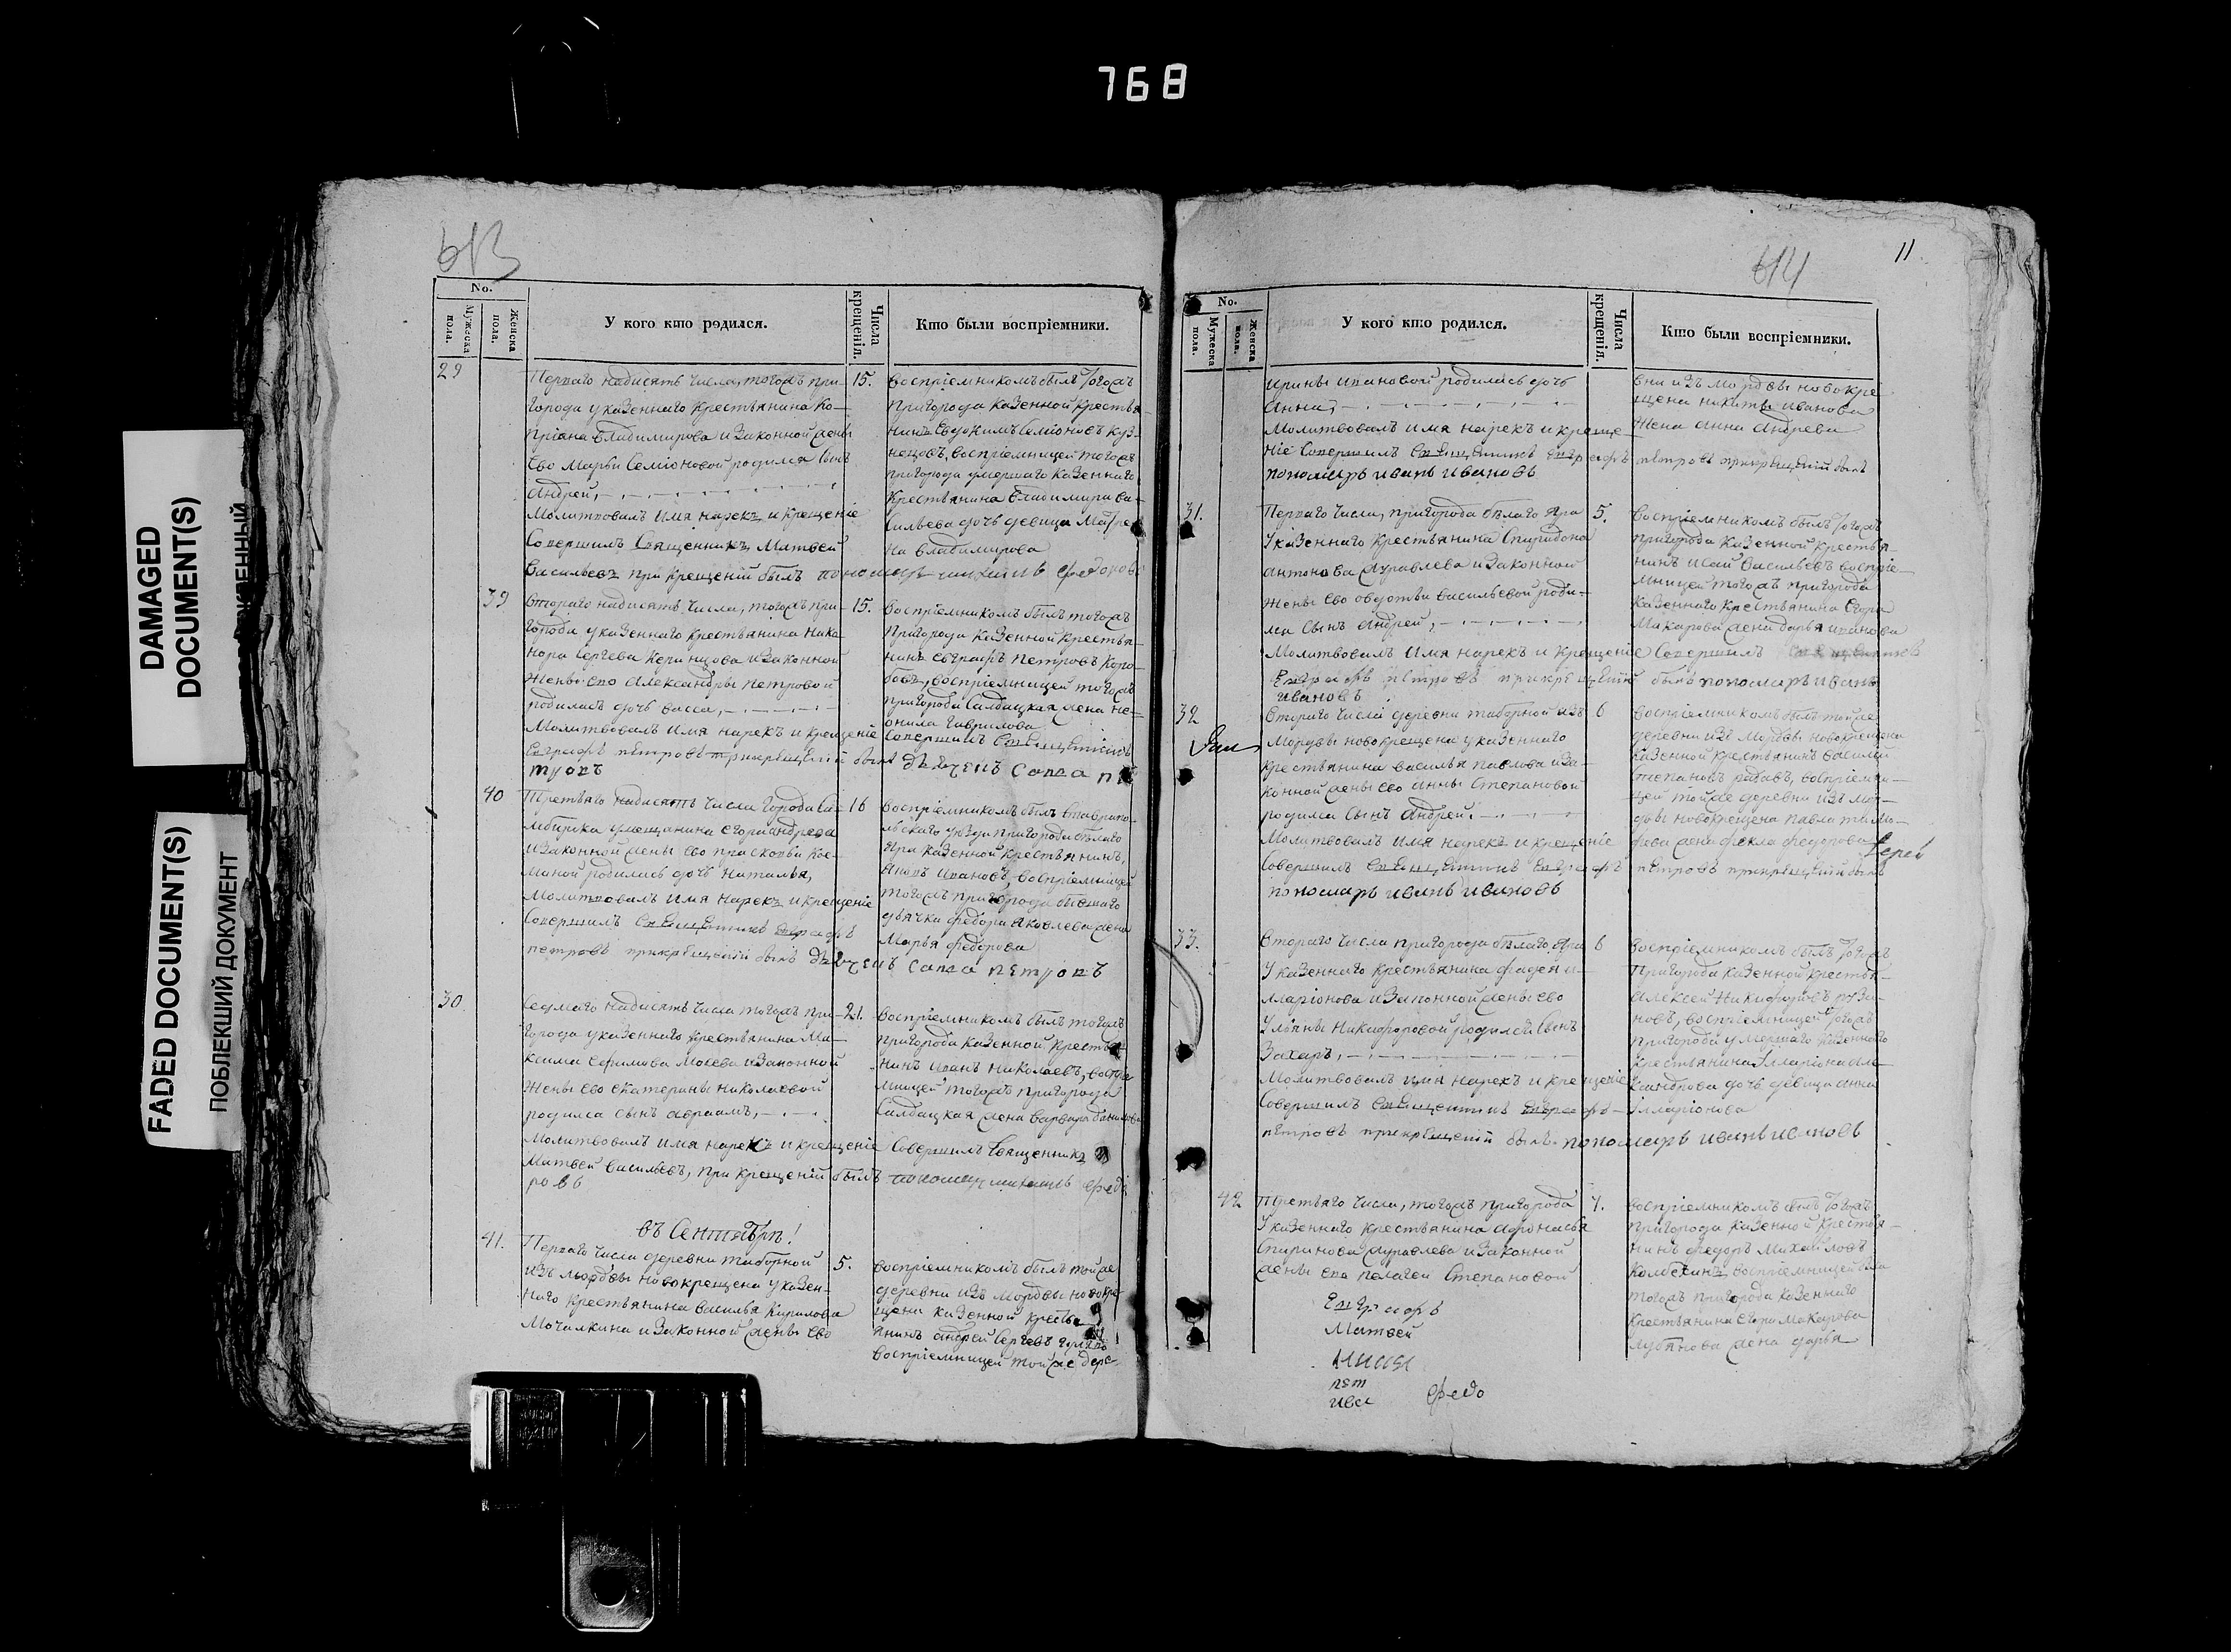 768
DAMAGED
DOCUMENT(S)
FADED DOCUMENT(S)
ПОБЛЕКШИЙ ДОКУМЕНТ
613
No.
Мужеска пола.
Женска пола.
У кого кто родился.
Числа крещенія.
Кто были воспріемники.
29
Перваго надесять числа, тогожъ при-
города у казеннаго крестьянина Ко-
пріана Владимирова и законной жены
ево Марьи Семіоновой родился сынъ
Андрей,
Молитвовалъ имя нарекъ и крещеніе
Совершилъ Священникъ Матвей
Васильевъ при крещеніи былъ пономарь
15.
воспріемникомъ былъ тогожъ
пригорода казенной крестья-
нинъ Евдокимъ Семіоновъ куз-
нецовъ, воспріемницей тогожъ
пригорода умершаго казеннаго
крестьянина Владимира Ва-
сильева дочь девица Матре-
на Владимирова
39
Втораго надесять числа, тогожъ при-
города у казеннаго крестьянина Ника-
нора Сергева и законной
жены ево Александры Петровой
родилась дочь Васса,
Молитвовалъ имя нарекъ и крещеніе Совершилъ Священникъ
Евграфъ Петровъ при крещеніи былъ дьячекъ Савва пе
тровъ
15.
воспріемникомъ былъ тогожъ
пригорода казенной крестья-
нинъ Евграфъ Петровъ Коро-
бовъ, воспріемницей тогожъ
пригорода Салдацкая жена не-
онила Гаврилова
40
Третьяго надесять числа города Си-
мбирска у мещанина Егора Андреева
и законной жены ево Прасковьи Кос-
миной родилась дочь Наталья,
Молитвовалъ имя нарекъ и крещеніе
Совершилъ Священникъ Евграфъ
петровъ при крещеніи былъ дьячекъ Савва петровъ
16
воспріемникомъ былъ Ставропо-
льскаго уезда пригорода белаго
Яра казенной крестьянинъ,
Иванъ Ивановъ, воспріемницей
тогожъ пригорода бывшаго
дьячка Федора Яковлева жена
Марья Федорова
30
Седмаго надесять числа тогожъ при-
города у казеннаго крестьянина Ма-
ксима Ефимова и законной
жены ево Екатерины Николаевой
родился сынъ авраамъ,
Молитвовалъ имя нарекъ и крещеніе Совершилъ Священникъ
Матвей Васильевъ, при крещеніи былъ пономарь
ровъ
21.
воспріемникомъ былъ тогожъ
пригорода казенной крестья-
нинъ Иванъ Николаевъ, воспріе
мницей тогожъ пригорода
Салдацкая жена Варвара
въ Сентябрѣ!
41.
Перваго числа деревни Таборной
изъ мордвы новокрещена у казен-
наго крестьянина Василья Кирилова
Мочалкина и законной жены ево
5.
воспріемникомъ былъ тойже
деревни изъ мордвы новокре-
щена казенной кресть
янинъ андрей Сергевъ
воспріемницей тойже дере-
614
11
No.
Мужеска пола.
Женска пола.
У кого кто родился.
Числа крещенія.
Кто были воспріемники.
Ирины Ивановой родилась дочь
Анна,
Молитвовалъ имя нарекъ и креще-
ніе Совершилъ Священникъ Евграфъ петровъ при крещеніи былъ
пономарь иванъ ивановъ
вни изъ мордвы новокре
щена никиты иванова
жена анна андреева
31.
Перваго числа, пригорода белаго Яра
У казеннаго крестьянина Спиридона
антонова журавлева и законной
жены ево овдотьи васильевой роди-
лся сынъ андрей,
Молитвовалъ имя нарекъ и крещеніе Совершилъ
Евграфъ петровъ при крещеніи былъ пономарь иванъ
ивановъ
5.
воспріемникомъ былъ тогожъ
пригорода казенной крестья-
нинъ Исай Васильевъ воспріе-
мницей тогожъ пригорода
казеннаго крестьянина Егора
Макарова жена дарья иванова
32
Втораго числа деревни таборной изъ
мордвы новокрещена у казеннаго
крестьянина василья павлова и за-
конной жены ево анны Степановой
родился сынъ андрей.
Молитвовалъ имя нарекъ и крещеніе
Совершилъ Священникъ Евграфъ петровъ при крещеніи былъ
пономарь иванъ ивановъ
6
воспріемникомъ былъ тойже
деревни изъ мордвы новокрещена
казенной крестьянинъ василей
Степановъ воспріемни-
цей тойже деревни изъ мор-
двы новокрещена павла тимо-
феева жена фекла федорова
33.
Втораго числа пригорода белаго Яра
У казеннаго крестьянина фадея и-
лларіонова и законной жены ево
Ульяны Никифоровой родился сынъ
Захаръ,
Молитвовалъ имя нарекъ и крещеніе
Совершилъ Священникъ Евграфъ
петровъ при крещеніи былъ пономарь иванъ ивановъ
6
воспріемникомъ былъ тогожъ
пригорода казенной крестья-
алексей Никифоровъ
новъ, воспріемницей тогожъ
пригорода умершаго казеннаго
крестьянина Илларіона але-
ксандрова дочь девица анна
илларіонова
42
Третьяго числа, тогожъ пригорода
У казеннаго крестьянина афонасья
Спиринова журавлева и законной
жены ево пелагеи Степановой
7.
воспріемникомъ былъ тогожъ
пригорода казенной крестья-
нинъ федоръ Михайловъ
воспріемницей была
тогожъ пригорода казеннаго
крестьянина Егора Макарова
жена дарья
Евграфъ
Матвей
пет
ива
федо